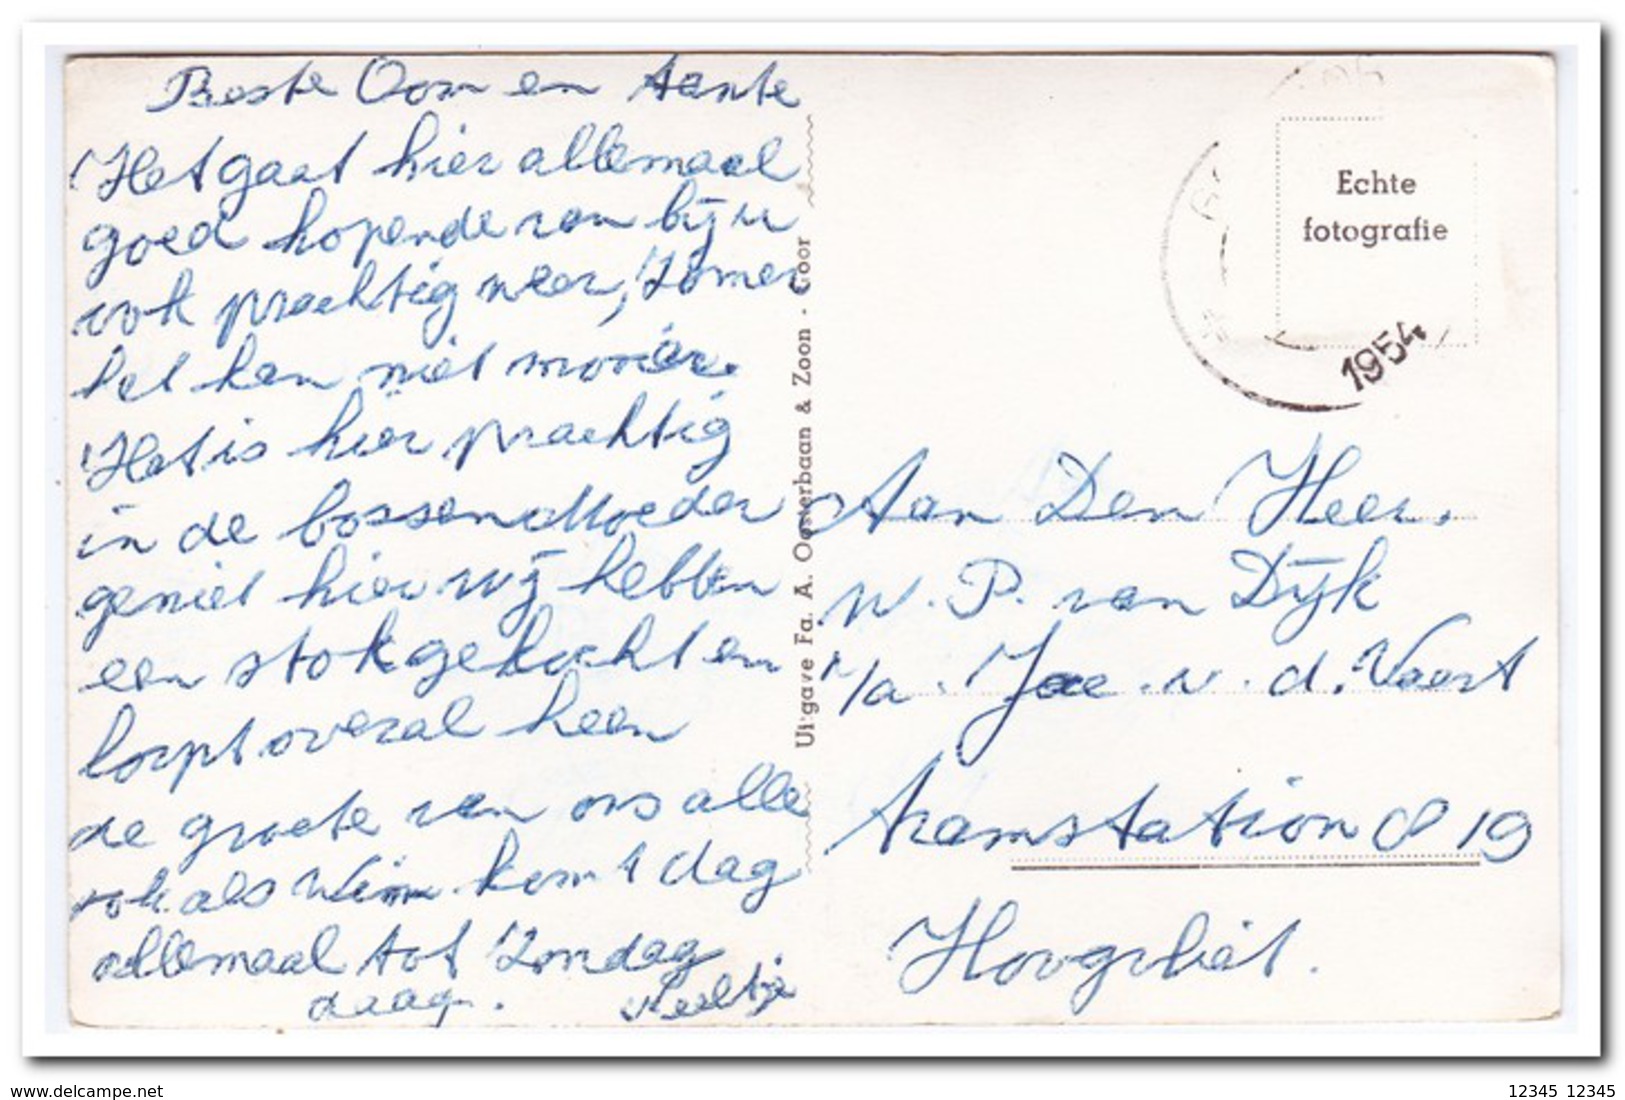 Beste Oom en tante
Het gaat hier allemaal
goed hopende van bij u
ook prachtig weer, zomer
het kan niet mooier.
Het is hier prachtig
in de bossen Moeder
geniet hier wij hebben
een stok gekocht en
loopt overal heen
de groete van ons alle
ook als Wim komt dag
allemaal tot Zondag
daag. Neeltje
Uitgave Fa. A. Oosterbaan & Zoon - Goor
Echte
fotografie
1954
Aan Den Heer.
W. P. van Dijk
p/a. Jac. v. d. Voort
tramstation 19
Hoogvliet.
delcampe.net
12345 12345